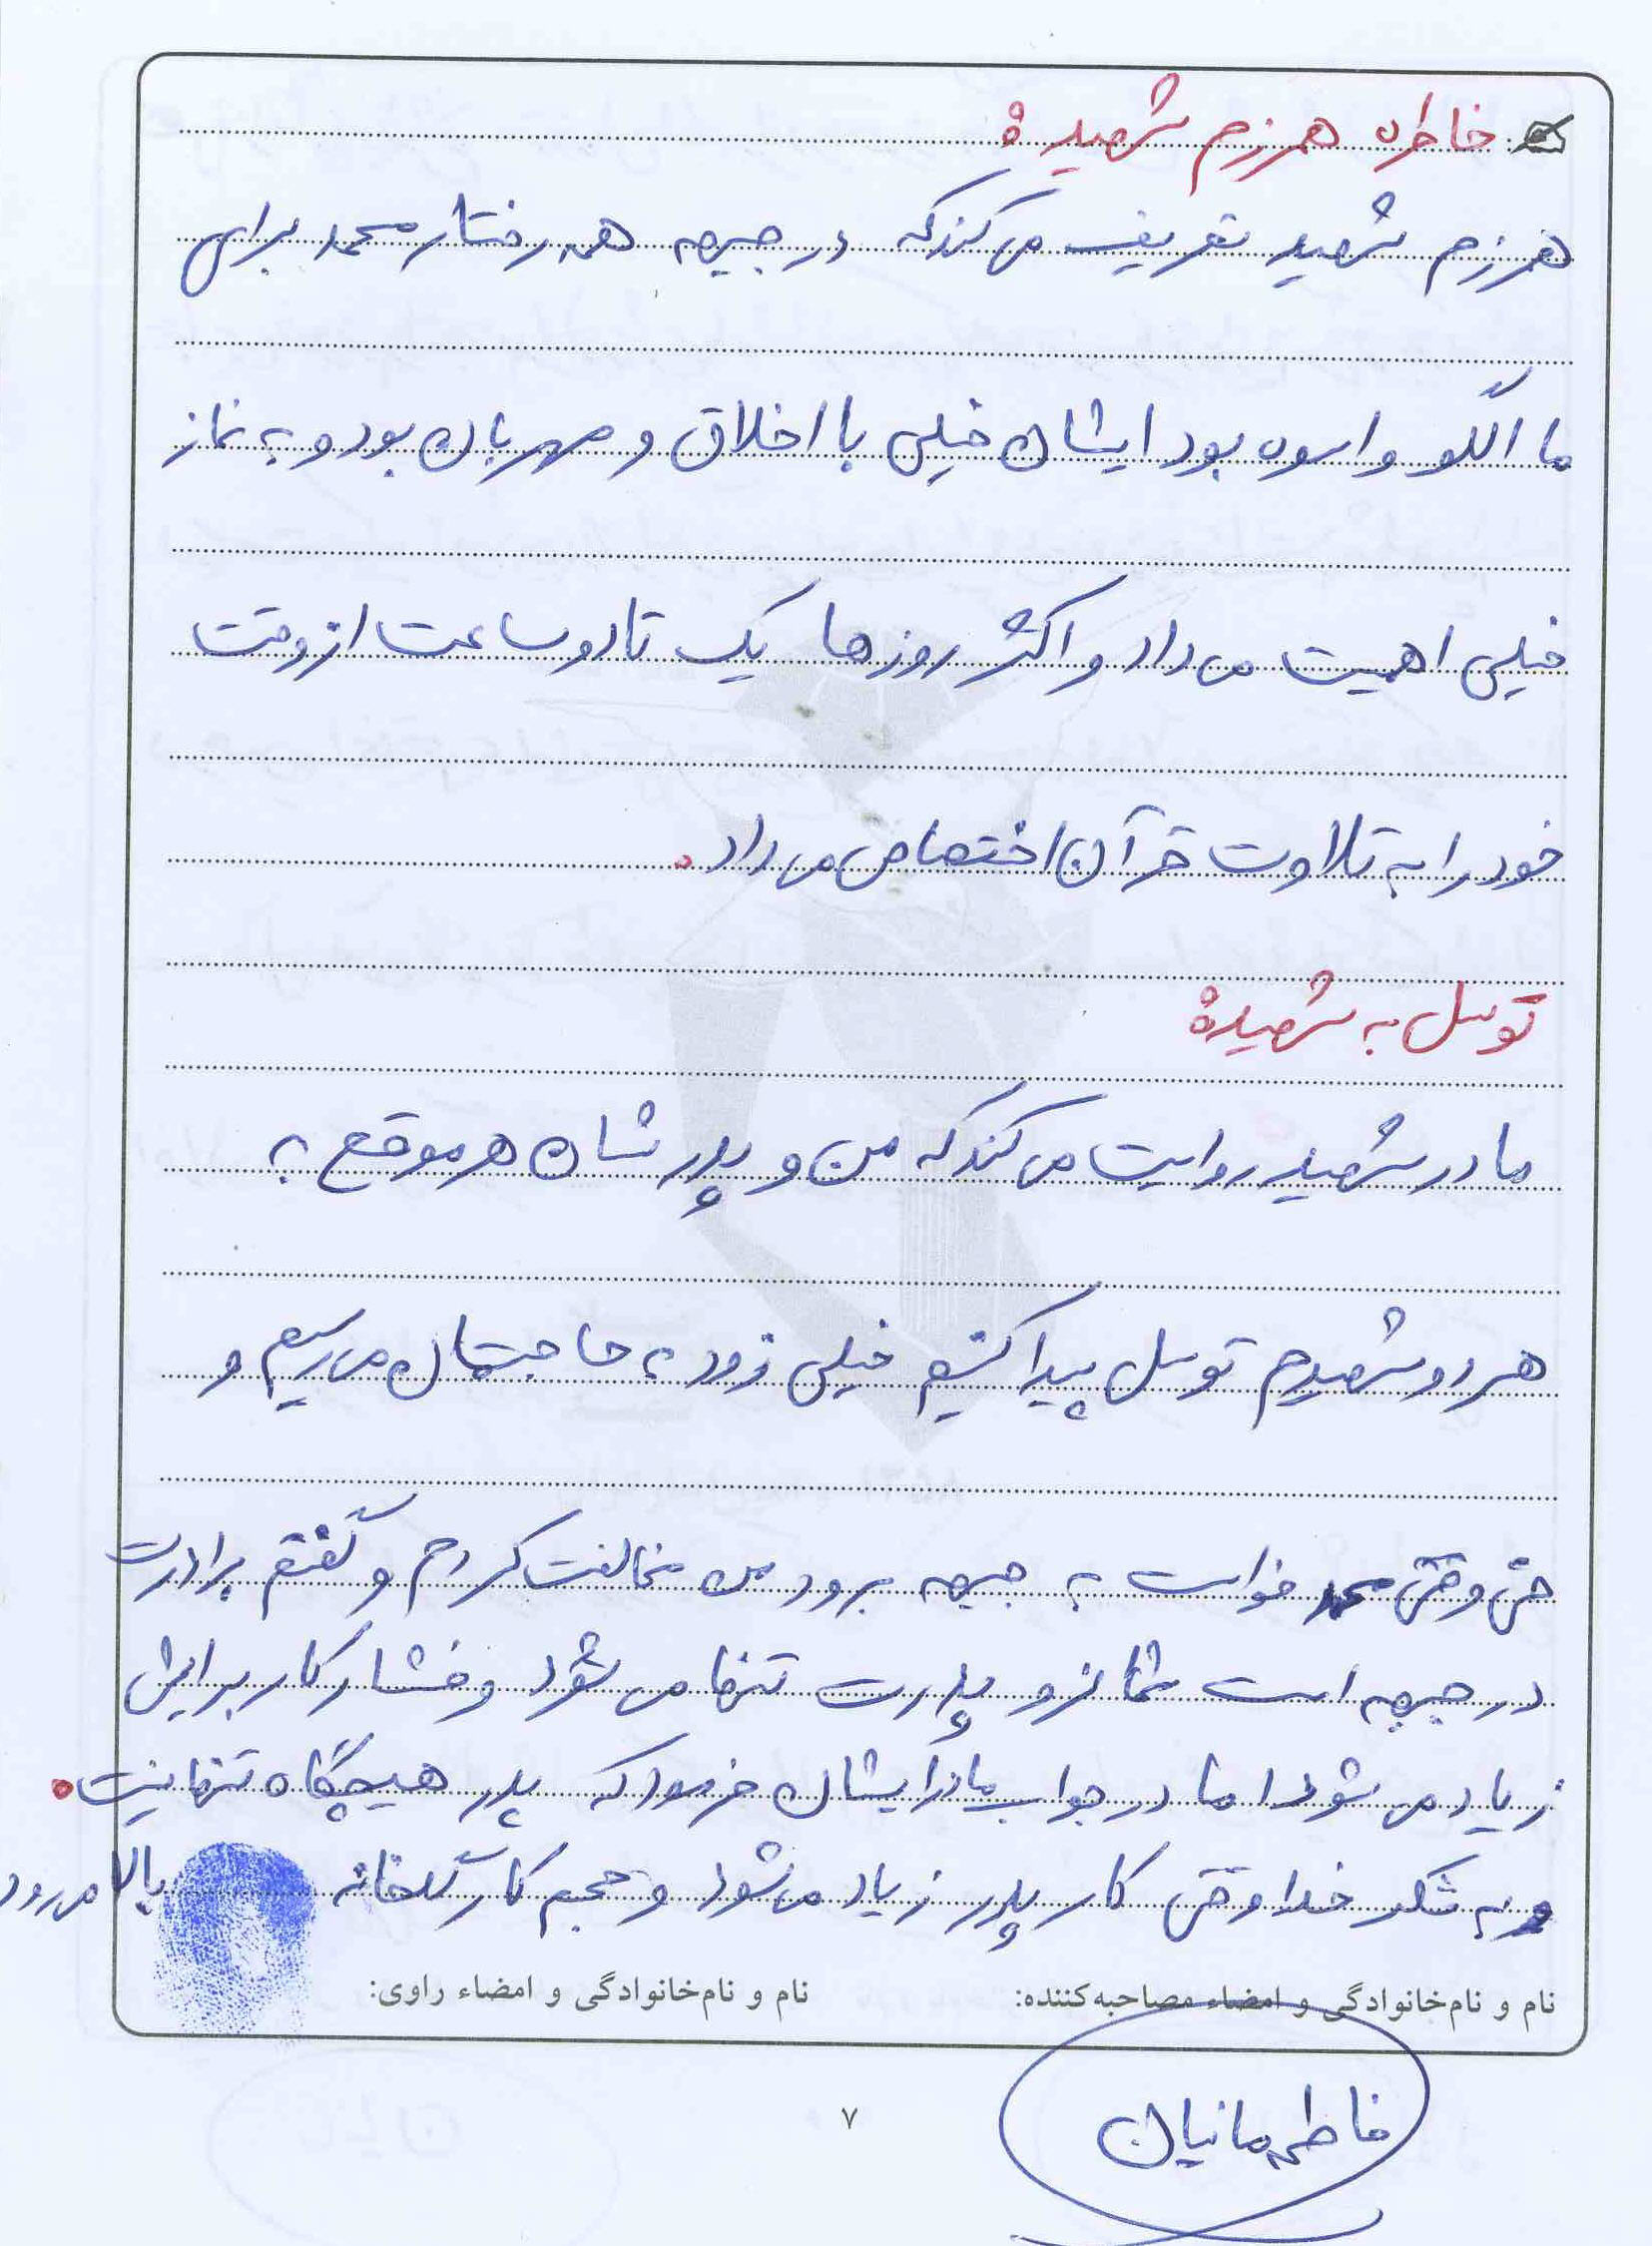 خاطره همرزم شهید:
همرزم شهید تعریف می کند که در جبهه همه رفتار محمد برای
ما الگو و اسوه بود ایشان خیلی با اخلاق و مهربان بود و به نماز
خیلی اهمیت می داد و اکثر روزها یک تا دو ساعت از وقت
خود را به تلاوت قرآن اختصاص می داد.
توسل به شهید:
مادر شهید روایت می کند که من و پدرشان هر موقع به
هر دو شهیدم توسل پیدا کنیم خیلی زود به حاجتمان می رسیم و
حتی وقتی محمد خواست به جبهه برود من مخالفت کردم و گفتم برادرت
در جبهه است شما نرو پدرت تنها می شود و فشار کار برایش
زیاد می شود اما در جواب مادر ایشان فرمود که پدر هیچگاه تنها نیست.
و به شکر خدا وقتی کار پدر زیاد می شود و حجم کار گلخانه بالا می رود
نام و نام‌خانوادگی و امضاء مصاحبه‌کننده: نام و نام‌خانوادگی و امضاء راوی:
فاطمه مانیان
۷